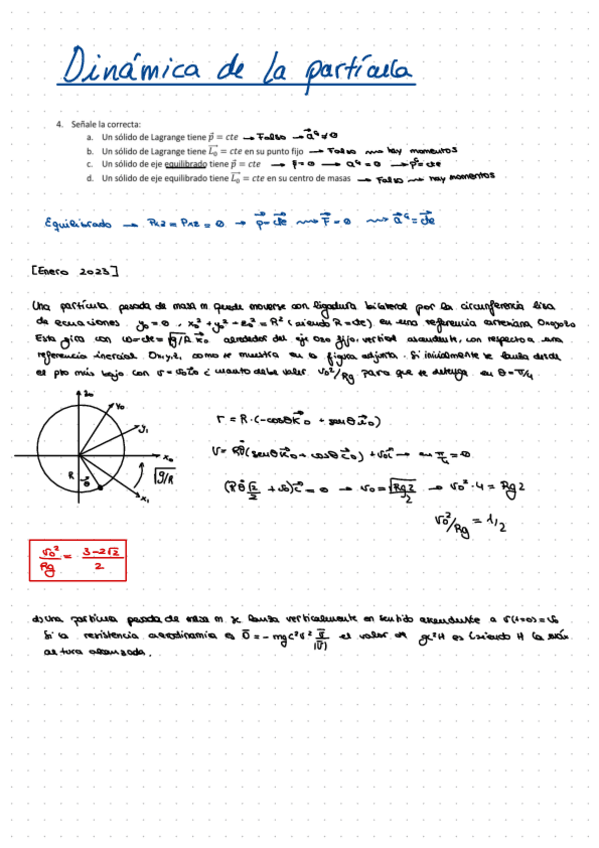 Dinámica de la partícula
4. Señale la correcta:
a. Un sólido de Lagrange tiene p⃗ = cte → Falso → a⃗ᴳ ≠ 0
b. Un sólido de Lagrange tiene L₀⃗ = cte en su punto fijo → Falso ⟿ hay momentos
c. Un sólido de eje equilibrado tiene p⃗ = cte → F=0 → aᴳ = 0 → p⃗=cte
d. Un sólido de eje equilibrado tiene L₀⃗ = cte en su centro de masas → Falso ⟿ hay momentos
Equilibrado → = 0 → p⃗=cte ⟿ F⃗=0 ⟿ a⃗ᴳ=cte
[Enero 2023]
Una partícula pesada de masa m puede moverse con ligadura bilateral por la circunferencia lisa
de ecuaciones y₀=0, x₀²+y₀²+z₀²=R² (siendo R=cte) en una referencia cartesiana
Esta gira con ω=cte=√g/R k⃗₀ alrededor del eje fijo, vertical ascendente, con respecto a una
referencia inercial como se muestra en la figura adjunta. Si inicialmente se lanza desde
el pto más bajo con v=v₀ i₀ ¿cuánto debe valer v₀²/Rg para que se detenga en θ=π/4
z₀
y₀
y₁
x₀
x₁
R
θ
√g/R
r = R·(-cosθ k⃗₀ + senθ i⃗₀)
V = Rθ̇(senθ k⃗₀ + cosθ i⃗₀) + v₀i → en π/4 = 0
(Rθ̇ √2/2 + v₀)i⃗ = 0 → v₀ = √Rg2/2 → v₀²·4 = Rg2
v₀²/Rg = 1/2
v₀²/Rg = 3-2√2/2
d) Una partícula pesada de masa m se lanza verticalmente en sentido ascendente a v(t=0)=v₀
Si la resistencia aerodinámica es D̄=-mgc²v² v̄/|v̄| el valor de gc²H es (siendo H la máx.
altura alcanzada.